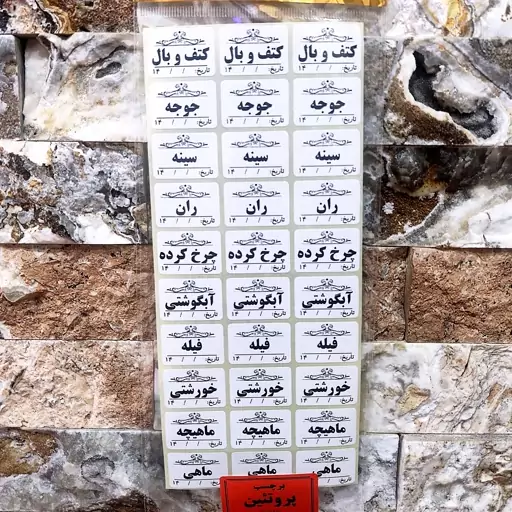 کتف و بال کتف و بال کتف و بال
تاریخ: / / ۱۴ تاریخ: / / ۱۴ تاریخ: / / ۱۴
جوجه جوجه جوجه
تاریخ: / / ۱۴ تاریخ: / / ۱۴ تاریخ: / / ۱۴
سینه سینه سینه
تاریخ: / / ۱۴ تاریخ: / / ۱۴ تاریخ: / / ۱۴
ران ران ران
تاریخ: / / ۱۴ تاریخ: / / ۱۴ تاریخ: / / ۱۴
چرخ کرده چرخ کرده چرخ کرده
تاریخ: / / ۱۴ تاریخ: / / ۱۴ تاریخ: / / ۱۴
آبگوشتی آبگوشتی آبگوشتی
تاریخ: / / ۱۴ تاریخ: / / ۱۴ تاریخ: / / ۱۴
فیله فیله فیله
تاریخ: / / ۱۴ تاریخ: / / ۱۴ تاریخ: / / ۱۴
خورشتی خورشتی خورشتی
تاریخ: / / ۱۴ تاریخ: / / ۱۴ تاریخ: / / ۱۴
ماهیچه ماهیچه ماهیچه
تاریخ: / / ۱۴ تاریخ: / / ۱۴ تاریخ: / / ۱۴
ماهی ماهی ماهی
تاریخ: / / ۱۴ تاریخ: / / ۱۴ تاریخ: / / ۱۴
برچسب
پروتئین